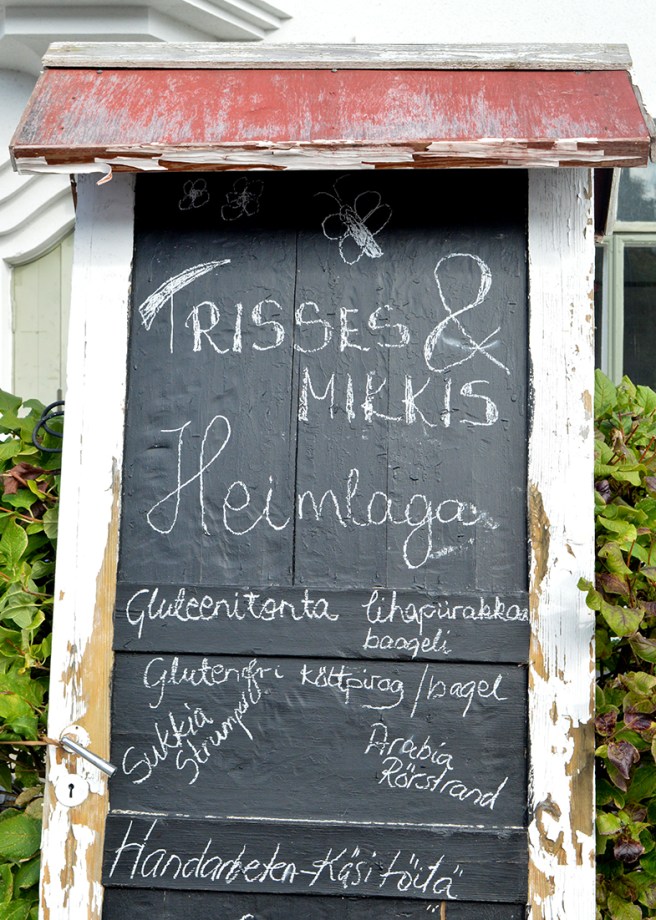 TRISSES &
MIKKIS
Heimlaga
Gluteenitonta lihapiirakkaa
baageli
Glutenfri köttpirog/bagel
Sukkia
Strumpor
Arabia
Rörstrand
Handarbeten-Käsitöitä